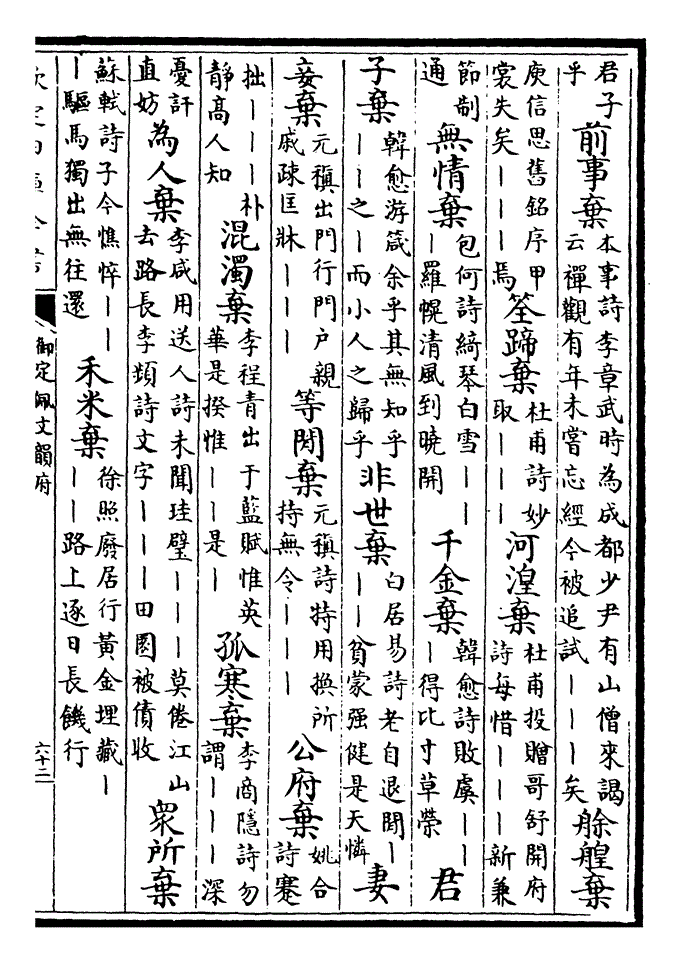 君子乎前事棄本事詩李章武時為成都少尹有山僧來謁云禪觀有年未嘗忘經今被追試｜｜｜矣艅艎棄
庾信思舊銘序甲裳失矣｜｜｜焉筌蹄棄杜甫詩妙取｜｜｜河湟棄杜甫投贈哥舒開府詩每惜｜｜｜新兼
節制通無情棄包何詩綺琴白雪｜｜｜羅幌清風到曉開千金棄韓愈詩敗虞｜｜｜得比寸草榮君
子棄韓愈游箴余乎其無知乎｜｜之｜而小人之歸乎非世棄白居易詩老自退閒｜｜｜貧蒙强健是天憐妻
妾棄元稹出門行門户親戚疎匡牀｜｜｜等閒棄元稹詩特用換所持無令｜｜｜公府棄姚合詩蹇
拙｜｜｜朴靜高人知混濁棄李程青出于藍賦惟英華是揆惟｜｜是｜孤寒棄李商隱詩勿謂｜｜｜深
憂訐直妨為人棄李咸用送人詩未聞珪璧｜｜｜莫倦江山去路長李頻詩文字｜｜｜田園被債收衆所棄
蘇軾詩子今憔悴｜｜｜驅馬獨出無往還禾米棄徐照廢居行黃金埋藏｜｜｜路上逐日長饑行
欽定四庫全書
御定佩文韻府
六十二